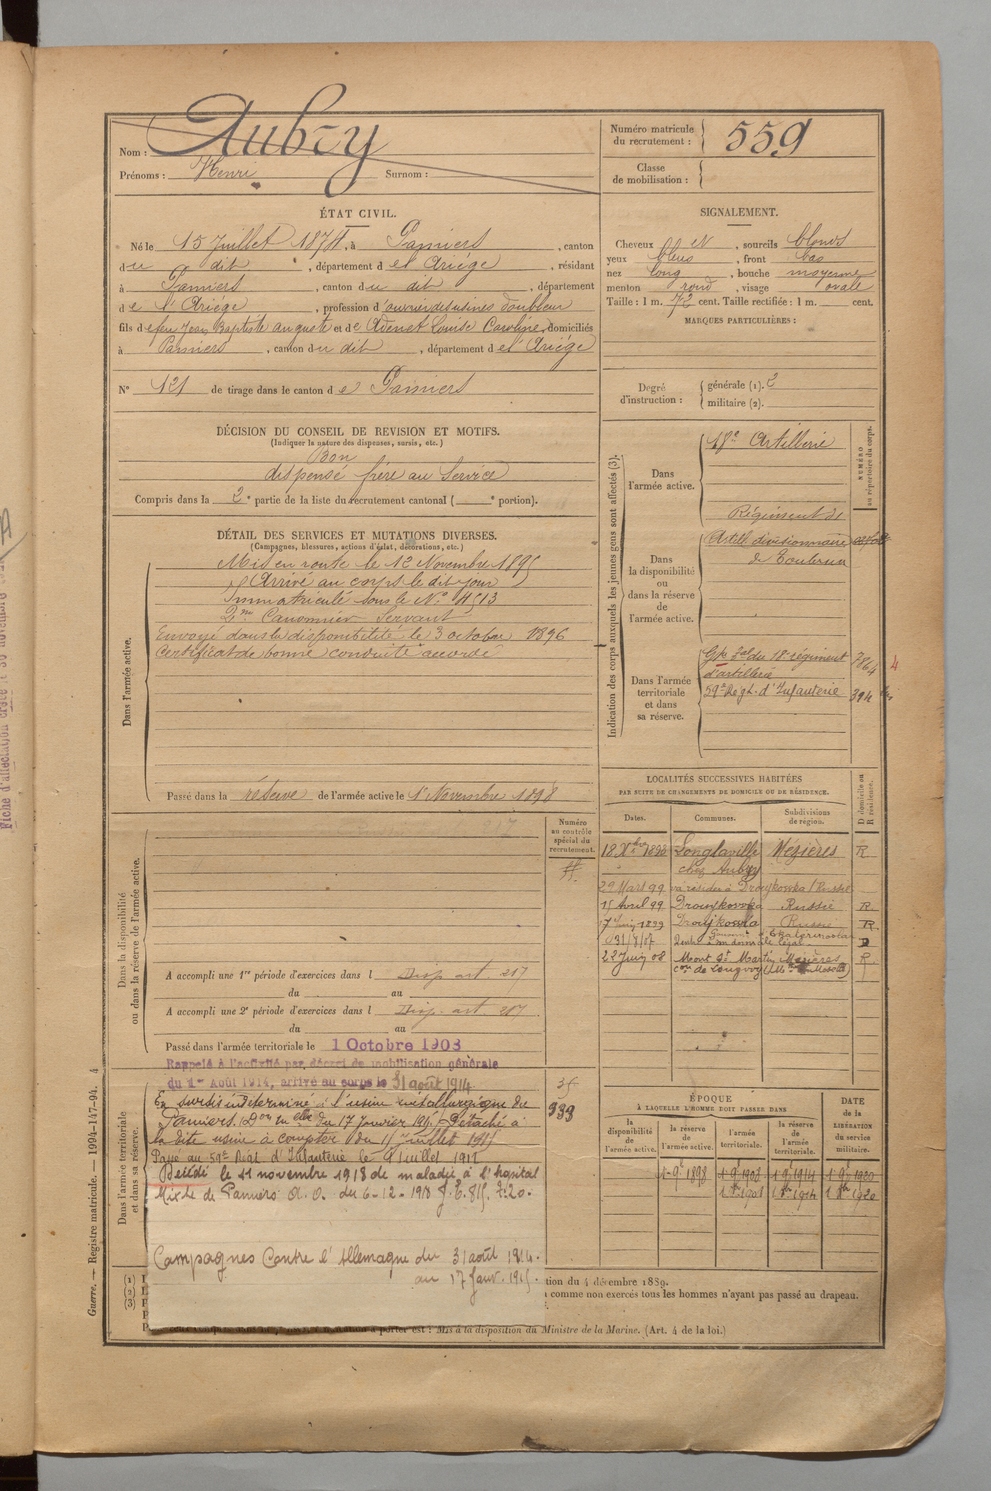 Aubry
Nom :
Prénoms : Henri Surnom :
Numéro matricule du recrutement : 559
Classe de mobilisation :
ÉTAT CIVIL.
Né le 15 Juillet 1874, à Pamiers, canton
du dit, département de l'Ariège, résidant
à Pamiers, canton du dit, département
de l'Ariège, profession d'ouvrier des usines doubleur
fils de feu Jean Baptiste auguste et de Adenet Louise Caroline, domiciliés
à Pamiers, canton du dit, département de l'Ariège
N° 121 de tirage dans le canton de Pamiers
SIGNALEMENT.
Cheveux et, sourcils blonds
yeux bleus, front bas
nez long, bouche moyenne
menton rond, visage ovale
Taille : 1 m. 72 cent. Taille rectifiée : 1 m. cent.
MARQUES PARTICULIÈRES :
Degré d'instruction : générale (1). 2
militaire (2).
DÉCISION DU CONSEIL DE REVISION ET MOTIFS.
(Indiquer la nature des dispenses, sursis, etc.)
Bon
dispensé frère au Service
Compris dans la 2e partie de la liste du recrutement cantonal ( e portion).
DÉTAIL DES SERVICES ET MUTATIONS DIVERSES.
(Campagnes, blessures, actions d'éclat, décorations, etc.)
Dans l'armée active.
Mis en route le 12 Novembre 1895
Arrivé au corps le dit jour
Immatriculé sous le N° 4513
2me Canonnier Servant
Envoyé dans la disponibilité le 3 octobre 1896
Certificat de bonne conduite accordé
Passé dans la réserve de l'armée active le 1er Novembre 1898
Indication des corps auxquels les jeunes gens sont affectés (3).
NUMÉRO au répertoire du corps.
Dans l'armée active.
18e Artillerie
Dans la disponibilité ou dans la réserve de l'armée active.
Régiment de
Artill divisionnaire
de Toulouse
Dans l'armée territoriale et dans sa réserve.
Gpe tal du 18e régiment 7864
d'artillerie
59e Regt. d'Infanterie 394
LOCALITÉS SUCCESSIVES HABITÉES
PAR SUITE DE CHANGEMENTS DE DOMICILE OU DE RÉSIDENCE.
Dates. Communes. Subdivisions de région. D domicile ou R résidence.
18 Xbre 1898 Longlaville Mézières R
chez Aubry
29 Mars 99 va résider à Droujkowka (Russie
15 Avril 99 Droujkowka Russie R
17 Juin 1899 Droujkowka Russie R
22 Juin 08 Mont St Martin Mézières R
Dans la disponibilité ou dans la réserve de l'armée active.
Numéro au contrôle spécial du recrutement.
A accompli une 1re période d'exercices dans l Disp. art 217
du au
A accompli une 2e période d'exercices dans l Disp. art 217
du au
Passé dans l'armée territoriale le 1 Octobre 1908
Rappelé à l'activité par décret de mobilisation générale
du 1er Août 1914, arrivé au corps le 31 août 1914
Dans l'armée territoriale et dans sa réserve.
En sursis indéterminé à l'usine métallurgique de
Pamiers. Don mlle du 17 Janvier 1915 Détaché à
la dite usine à compter du 11 Juillet 1915
Passé au 59e Régt d'Infanterie le 9 Juillet 1917
Décédé le 21 novembre 1918 de maladie à l'hopital
Mixte de Pamiers A. O. du 6-12-1918
Campagnes Contre l'Allemagne du 31 août 1914.
au 17 Janv. 1915.
939
ÉPOQUE
À LAQUELLE L'HOMME DOIT PASSER DANS
la disponibilité de l'armée active. la réserve de l'armée active. l'armée territoriale. la réserve de l'armée territoriale.
DATE de la LIBÉRATION du service militaire.
1-9e 1898 1-9e 1908 1-9e 1914 1-9e 1920
tion du 4 décembre 1889.
comme non exercés tous les hommes n'ayant pas passé au drapeau.
à porter est : Mis à la disposition du Ministre de la Marine. (Art. 4 de la loi.)
Guerre. — Registre matricule. — 1994-147-94. 4